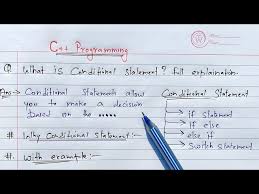 C++ Programming
Q. What is Conditional Statement? Full explaination.
Ans → Conditional Statements allow
you to make a decision
based on the .....
Conditional Statement
→ if statement
→ if else
→ else if
→ Switch statement
# Why Conditional Statement:-
# With example:-